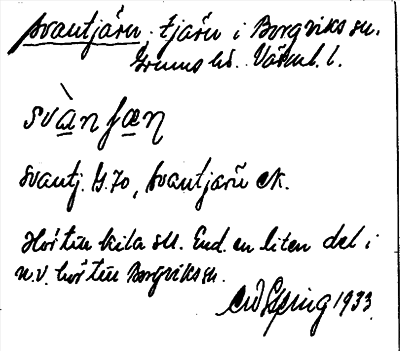 Svantjärn. tjärn i Borgviks sn.
Grums hd. Värml. l.
svànfæn
Svantj. G.70, Svantjärn ek.
Hör till Kila sn. End. en liten del i
n.v. hör till Borgviks sn.
1933